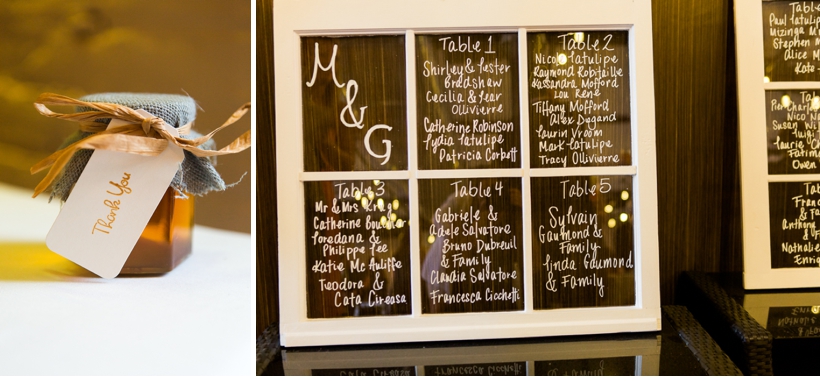 Thank You
M
&
G
Table 1
Shirley & Lester
Bradshaw
Cecilia & Lear
Ollivierre
Catherine Robinson
Lydia Latulipe
Patricia Corbett
Table 2
Nicole Latulipe
Raymond Robitaille
Kassandra Mofford
Lou René
Tiffany Mofford
Alex Dugand
Laurin Vroom
Mark Latulipe
Tracy Ollivierre
Table 3
Mr & Mrs
Catherine
Loredana &
Philippe Lee
Katie Mc Auliffe
Teodora &
Cata Cireasa
Table 4
Gabriele &
Adele Salvatore
Bruno Dubreuil
& Family
Claudia Salvatore
Francesca Cicchetti
Table 5
Sylvain
Gaumond &
Family
Linda Gaumond
& Family
Table
Paul Latulip
Mizinga M
Stephen M
Alice M
Kate
Pier Charl
Nico
Susan Wi
Luigi
Laurie
Fatima
Owen
Table
Franc
Anthony
& F
Nathalie
Enric